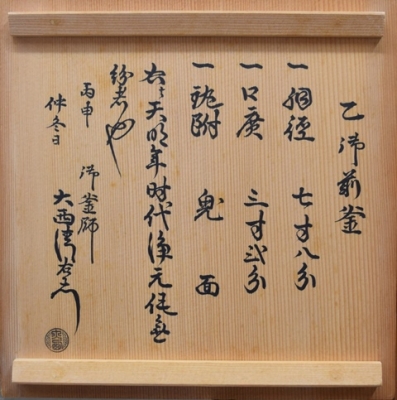 乙御前釜
一胴径 七寸八分
一口廣 三寸弐分
一鐶附 鬼面
右ハ天明年时代浄元侭無
紛者也
丙申
仲冬日
御釜師
大西清右衛門